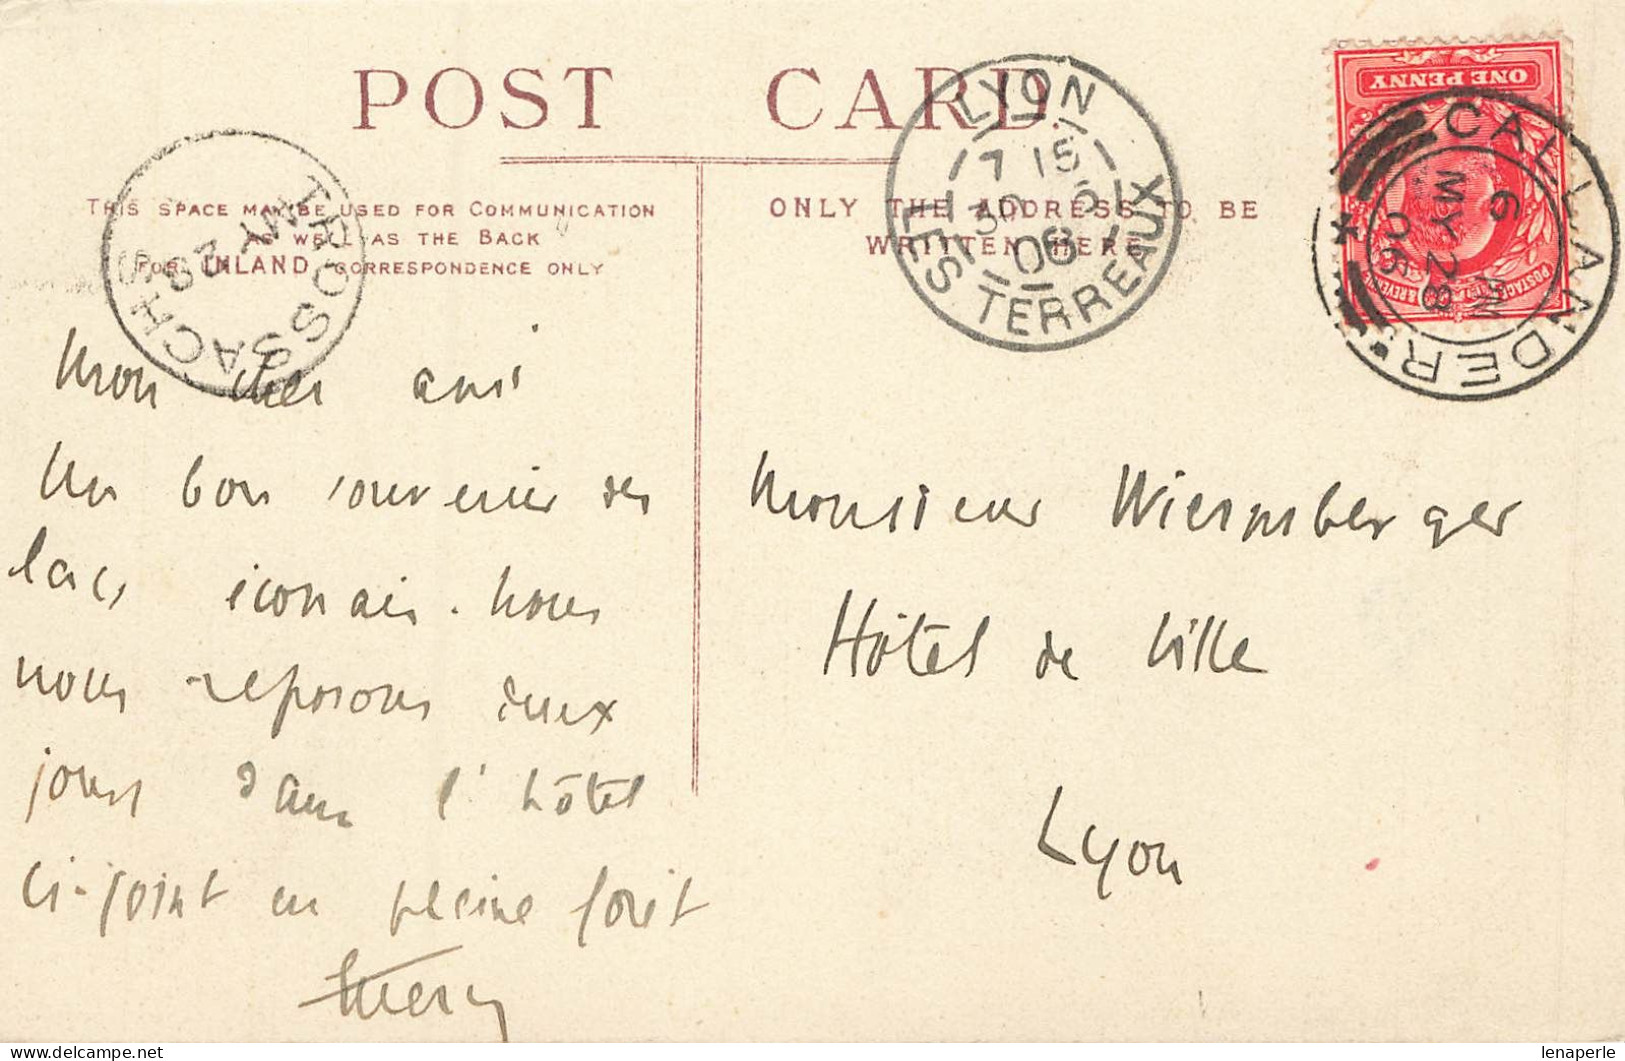 POST CARD
THIS SPACE MAY BE USED FOR COMMUNICATION
AS WELL AS THE BACK
FOR INLAND CORRESPONDENCE ONLY
ONLY THE ADDRESS TO BE
WRITTEN HERE
TROSSACHS
MY 28
LYON
7 15
30 5
06
LES TERREAUX
ONE PENNY
POSTAGE & REVENUE
CALLANDER
6 PM
MY 28
06
Mon cher ami
Un bon souvenir des
lacs écossais. Nous
nous reposons deux
jours dans l'hôtel
ci-joint en pleine forêt
Monsieur Wiernsberger
Hôtel de Ville
Lyon
lenaperle